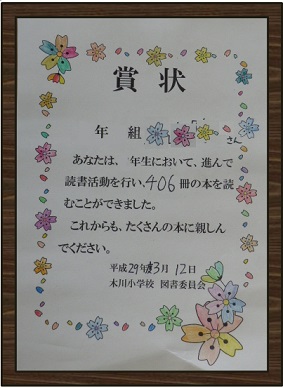 賞状
年 組 さん
あなたは、一年生において、進んで
読書活動を行い、406冊の本を読
むことができました。
これからも、たくさんの本に親しん
でください。
平成29年3月12日
木川小学校 図書委員会